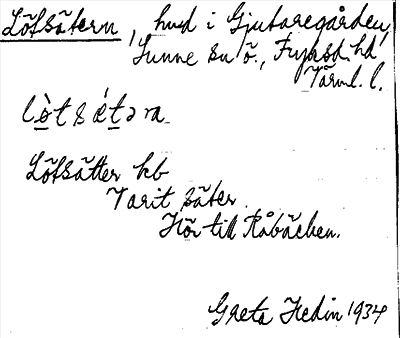 Löfsätern, hmd i Gjutaregården,
Sunne sn ö., Fryksd. hd
Värml. l.
Löfsätter kb
Varit säter.
Hör till Råbäcken.
Greta Hedin 1934